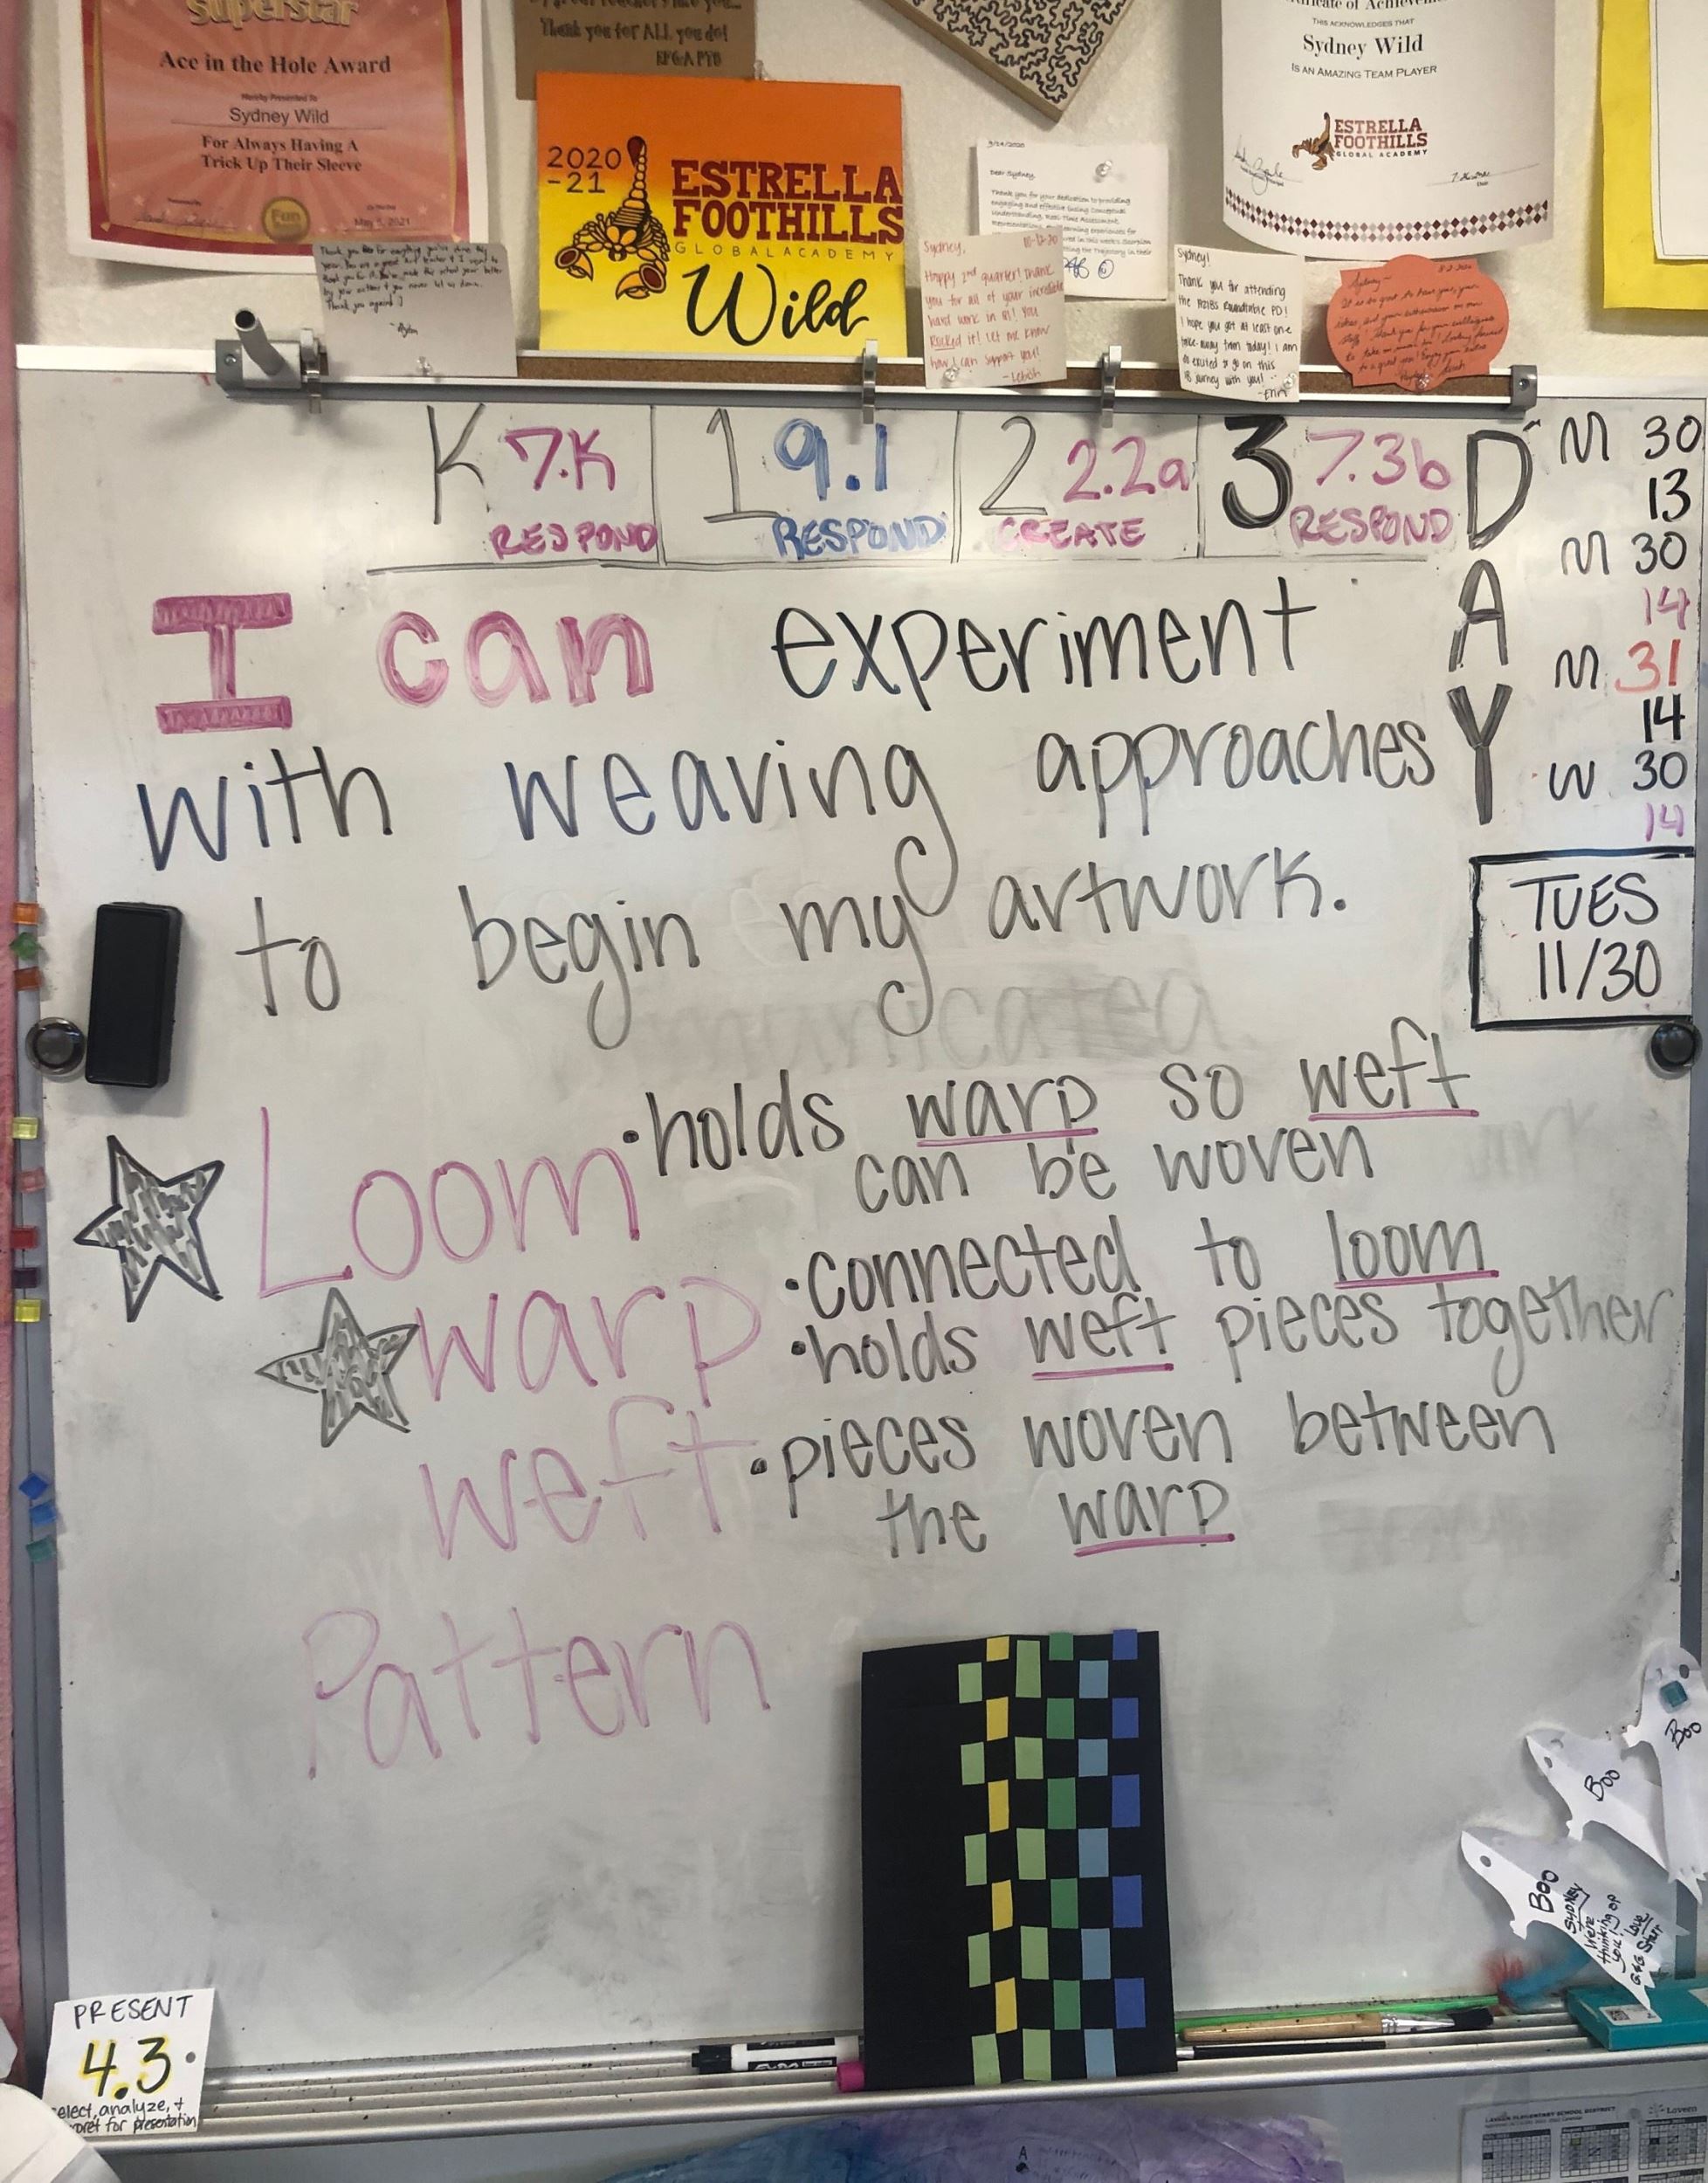 Superstar
Ace in the Hole Award
Hereby Presented To
Sydney Wild
For Always Having A
Trick Up Their Sleeve
Fun
May 5, 2021
Thank you for ALL you do!
EFGA PTO
2020
-21
ESTRELLA
FOOTHILLS
GLOBAL ACADEMY
Wild
Dear Sydney,
Thank you for your dedication to providing
Sydney, 10-12-20
Happy 2nd quarter! Thank
you for all of your incredible
hard work in Q1! You
Rocked it! Let me know
how I can support you!!
Sydney!
Thank you for attending
Roundtable PD!
I hope you got at least one
take-away from today! I am
so excited to go on this
journey with you!
-Erin
THIS ACKNOWLEDGES THAT
Sydney Wild
IS AN AMAZING TEAM PLAYER
ESTRELLA
FOOTHILLS
GLOBAL ACADEMY
K 7.K
RESPOND
1 9.1
RESPOND
2 2.2a
CREATE
3 7.3b
RESPOND
DAY
M 30
13
M 30
14
M 31
14
W 30
14
TUES
11/30
I can experiment
with weaving approaches
to begin my artwork.
Loom •holds warp so weft
can be woven
warp •connected to loom
•holds weft pieces together
weft •pieces woven between
the warp
Pattern
Boo
Boo
Boo
SYDNEY
We're
thinking of
you!
Love
G&G Starr
PRESENT
4.3
elect, analyze, +
pret for presentation